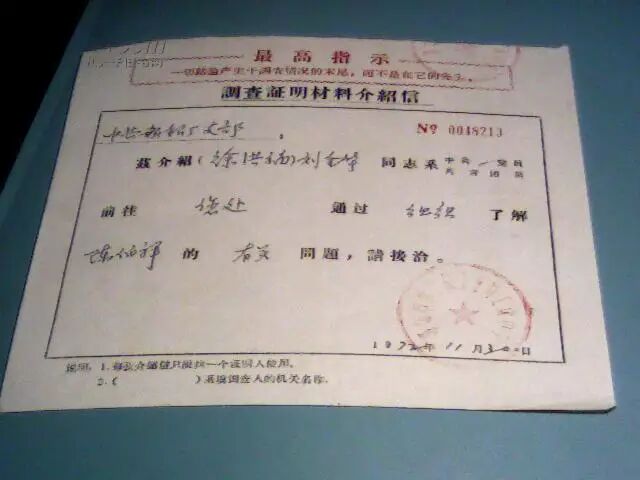 最高指示
一切结论产生于调查情况的末尾，而不是在它的先头。
調查証明材料介紹信
支部。
№ 0048213
茲介紹(徐洪福)刘 同志系 中共 党員 共青团员
前往 您处 通过 组织 了解
陈伯祥 的 有关 問題，請接洽。
1972年11月30日
说明：1.每张介绍信只能找一个证明人使用。
2.( )系填調查人的机关名称。